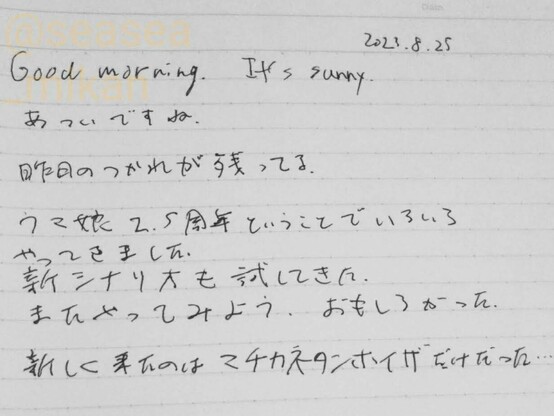 @seasea
_mikan
2023.8.25
Good morning. It's sunny.
あついですね.
昨日のつかれが残ってる.
ウマ娘 2.5周年ということでいろいろ
やってきました.
新シナリオも試してきた.
またやってみよう. おもしろかった.
新しく来たのはマチカネタンホイザだけだった…